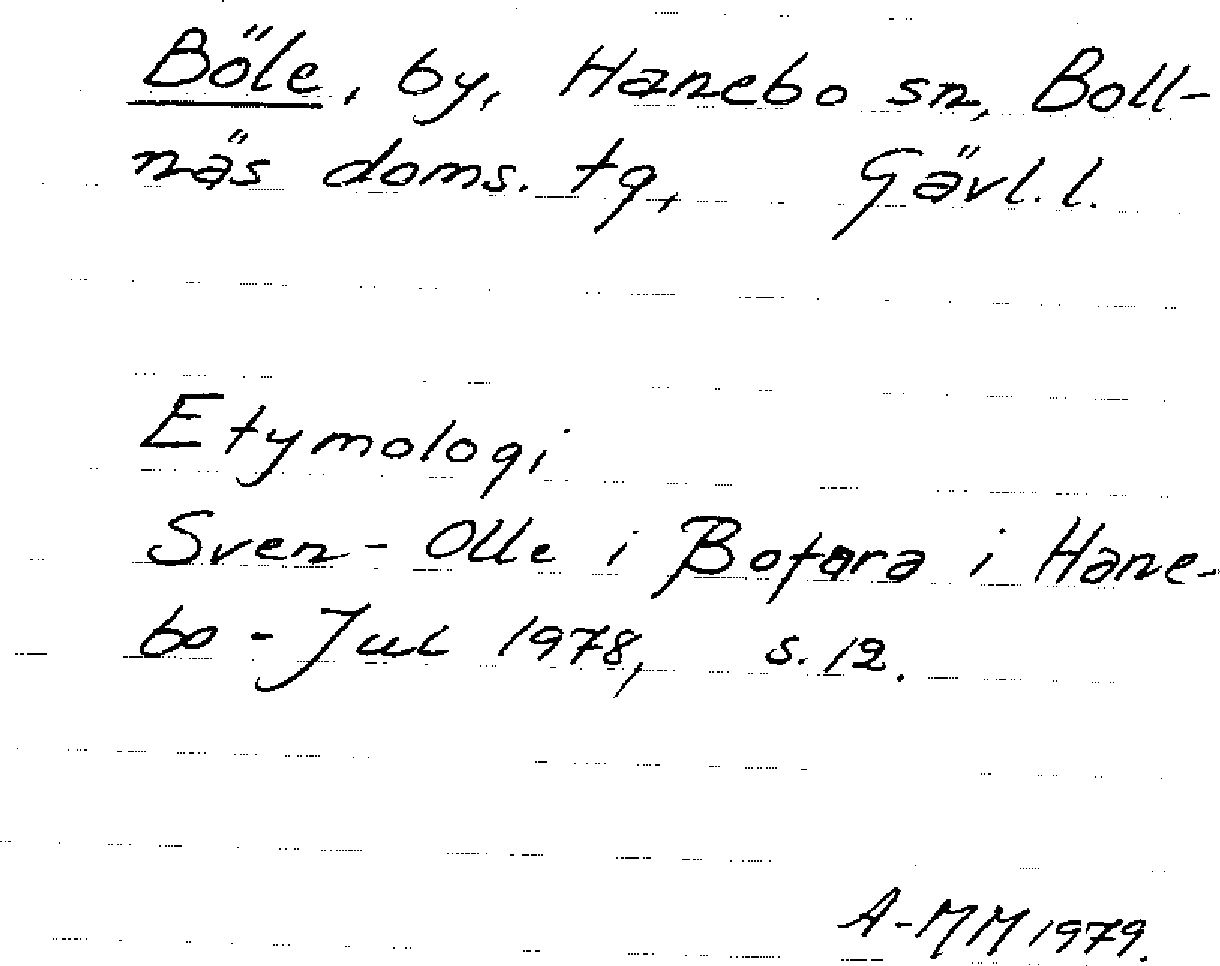 Böle, by, Hanebo sn, Boll-
näs doms. tg, Gävl. l.
Etymologi
Sven-Olle i Bofara i Hane-
bo - Jul 1978, s. 12.
A-MM 1979.